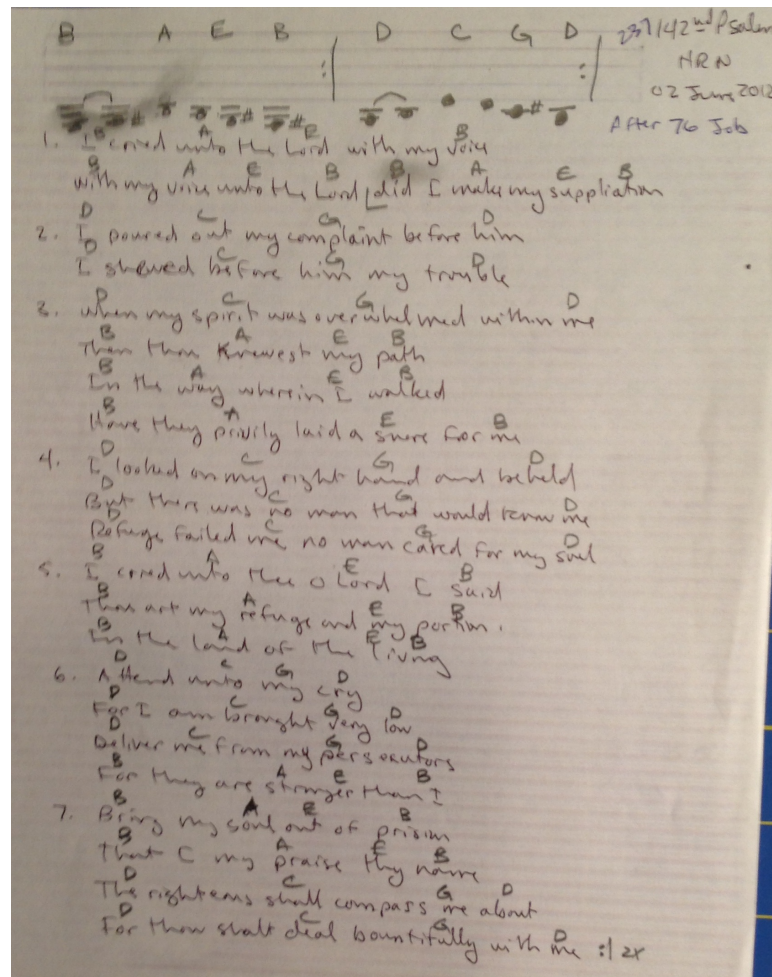 B A E B :| D C G D :|
237/142nd Psalm
NRN
02 June 2012
After 76 Job
B A E B
1. I cried unto the Lord with my voice
B A E B B A E B
with my voice unto the Lord did I make my suppliation
D C G D
2. I poured out my complaint before him
D C G D
I shewed before him my trouble
D C G D
3. when my spirit was overwhelmed within me
B A E B
Then thou knewest my path
B A E B
In the way wherein I walked
B A E B
Have they privily laid a snare for me
D C G D
4. I looked on my right hand and beheld
D C G D
But there was no man that would know me
D C G D
Refuge failed me no man cared for my soul
B A E B
5. I cried unto thee O Lord I said
B A E B
Thou art my refuge and my portion.
B A E B
In the land of the living
D C G D
6. Attend unto my cry
D C G D
For I am brought very low
D C G D
Deliver me from my persecutors
B A E B
For they are stronger than I
B A E B
7. Bring my soul out of prision
B A E B
That I my praise thy name
D C G D
The righteous shall compass me about
D C G D
For thou shalt deal bountifully with me :| 2x